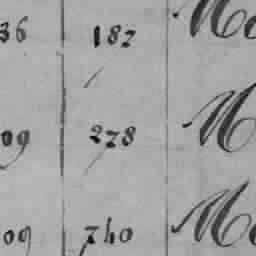 36 182 Mo
09 278 M
09 740 Mo